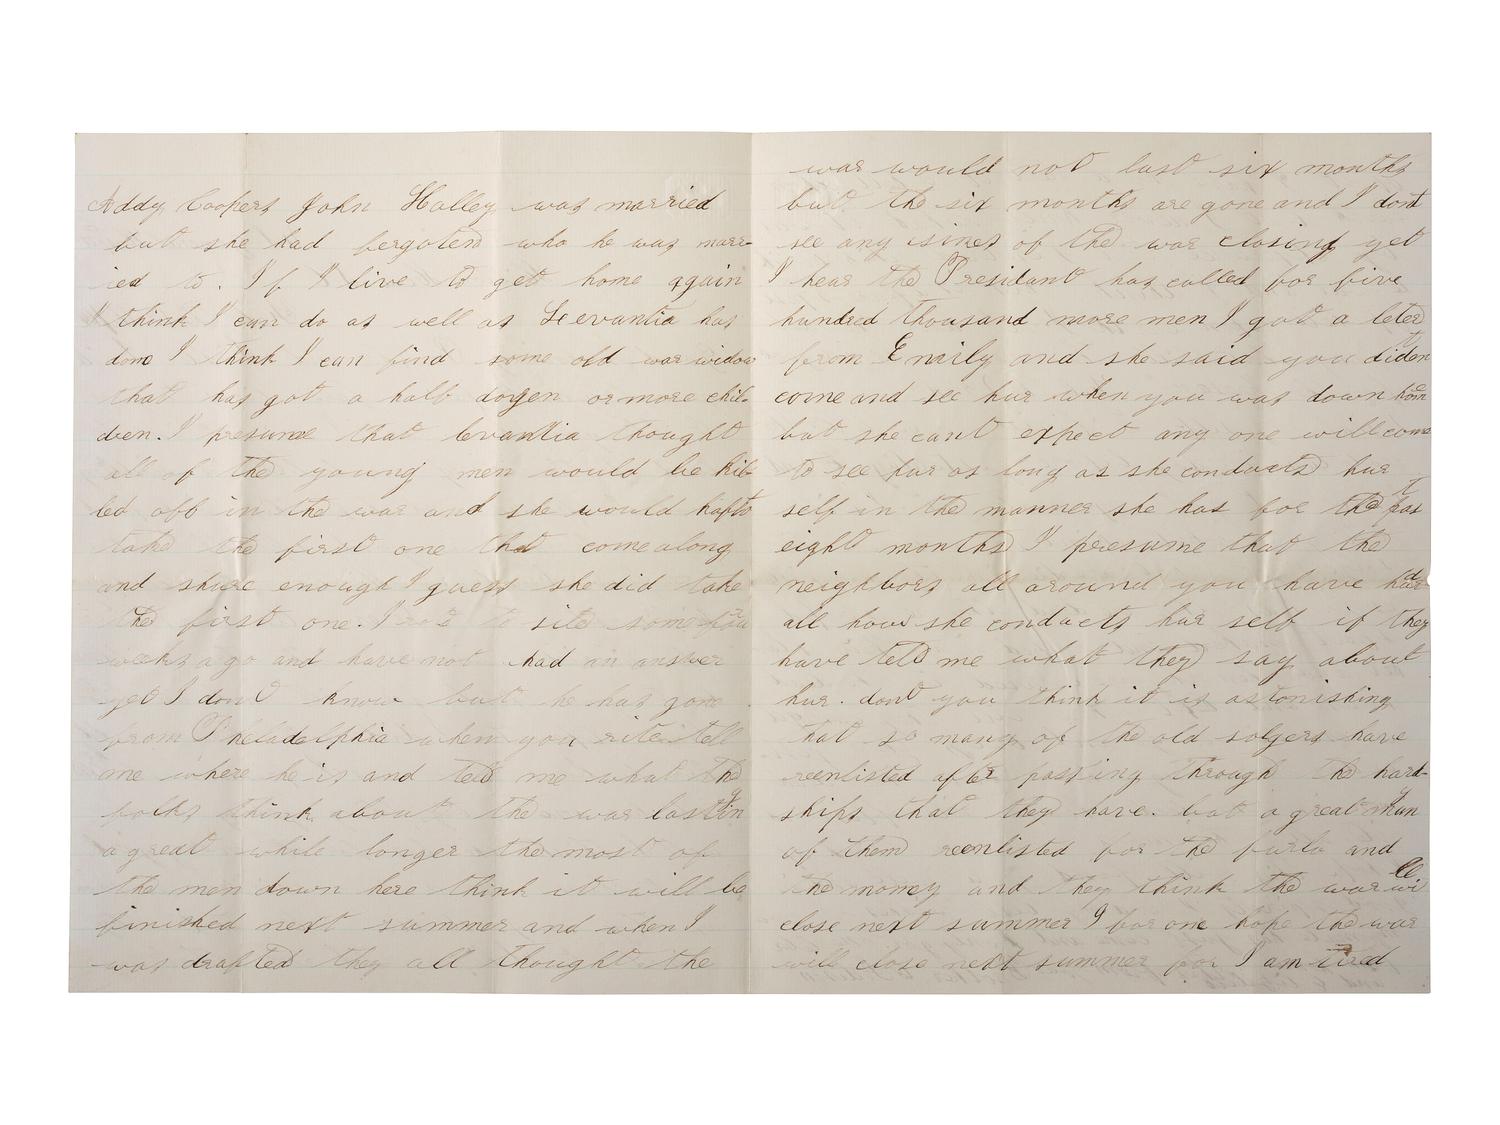 Addy Coopers John Halley was married
but she had fergoten who he was marr-
ied to. If I live to get home again
I think I can do as well as Levantia has
done I think I can find some old war widow
that has got a half dozen or more chil-
dren. I presume that levantia thought
all of the young men would be kil-
led off in the war and she would hafto
take the first one that come along
and shure enough I guess she did take
the first one. I rote to site some few
weeks ago and have not had an answer
yet I dont know but he has gone
from Pheladelphia when you rite tell
me where he is and tell me what the
folks think about the war lasting
a great while longer the most of
the men down here think it will be
finished next summer and when I
was drafted they all thought the
war would not last six months
but the six months are gone and I dont
see any sines of the war closing yet
I hear the Presidant has called for five
hundred thousand more men I got a leter
from Emily and she said you didnt
come and see hur when you was down hom
but she cant expect any one will come
to see hur as long as she conducts hur
self in the manner she has for the past
eight months I presume that the
neighbors all around you have had
all how she conducts hur self if they
have told me what they say about
hur. dont you think it is astonishing
that so many of the old solgers have
reenlisted after passing through the hard-
ships that they have. but a great many
of them reenlisted for the furlo and
the money and they think the war will
close next summer I for one hope the war
will close next summer for I am tired